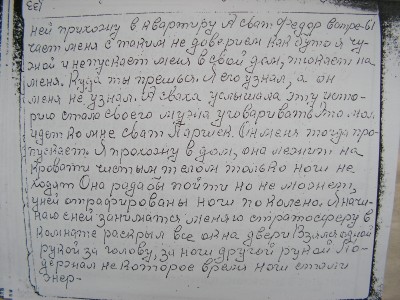 33
ней прихожу в квартиру А сват Федор встре-вы
чает меня с таким не доверием как буто я чу-
жой и не пускает меня в свой дом, толкает на
меня. Куда ты прешься. Я его узнал, а он
меня не узнал. А сваха услышала эту исто-
рию стала своего мужа уговаривать Это. мол.
идет ко мне сват Ларшек. Он меня тогда про-
пускает. Я прохожу в дом, она лежит на
кровати чистым телом только ноги не
ходят Она рада бы пойти но не может,
у ней отрафированы ноги по колено. Я начи-
наю с ней заниматся меняю стратосферу в
комнате раскрыл все окна двери Взял одной
рукой за голову, за ноги другой рукой По-
держал некоторое время ноги стали
энер-